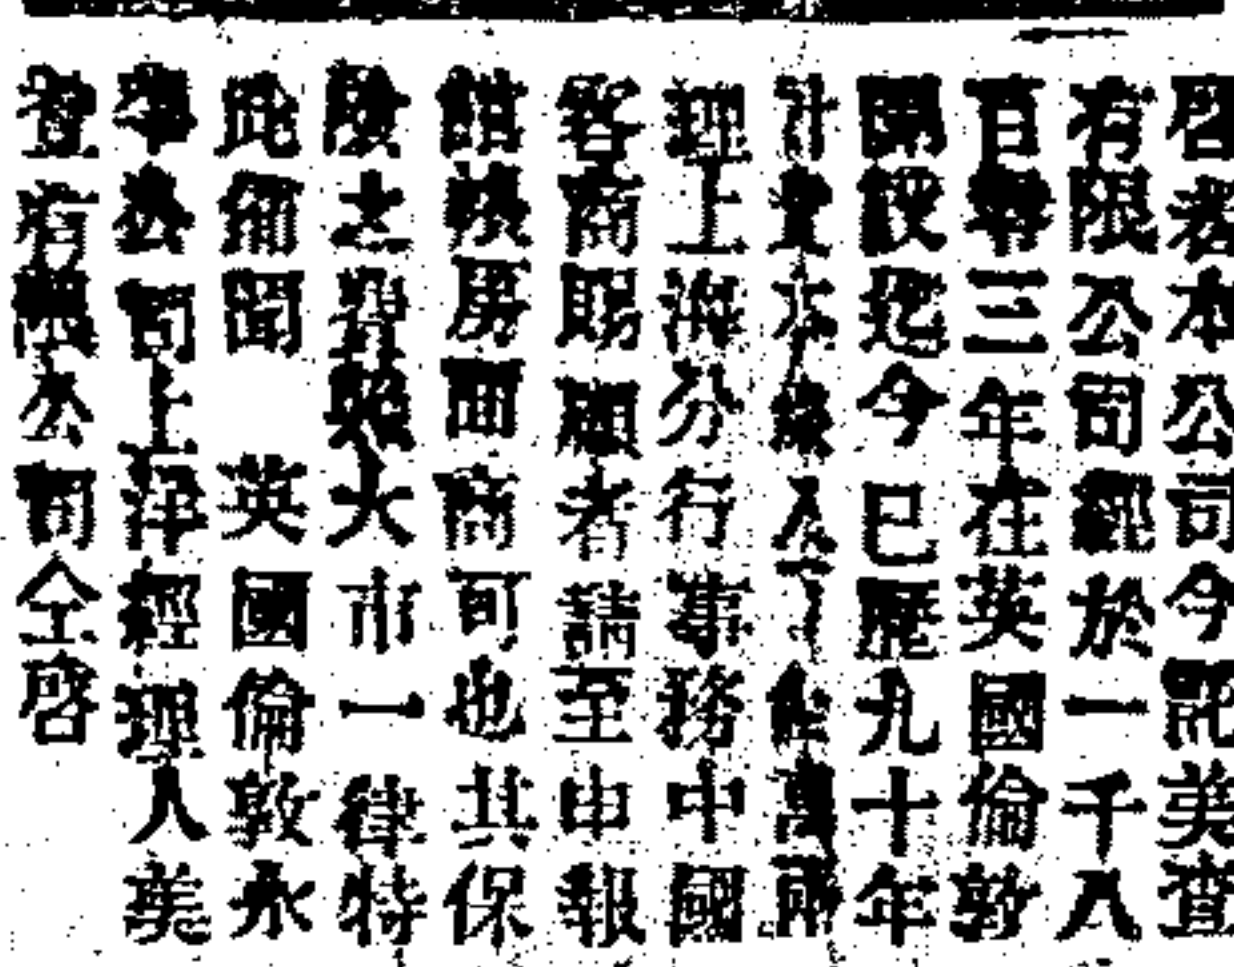 啓者本公司今託美查
有限公司經於一千八
百零三年在英國倫敦
開設迄今已歷九十年
計資本銀 萬兩
理上海分行事務中國
客商賜顧者請至申報
館賬房面商可也其保
險之費照大市一律特
此佈聞 英國倫敦永
寧公司上洋經理人美
查有限公司仝啓